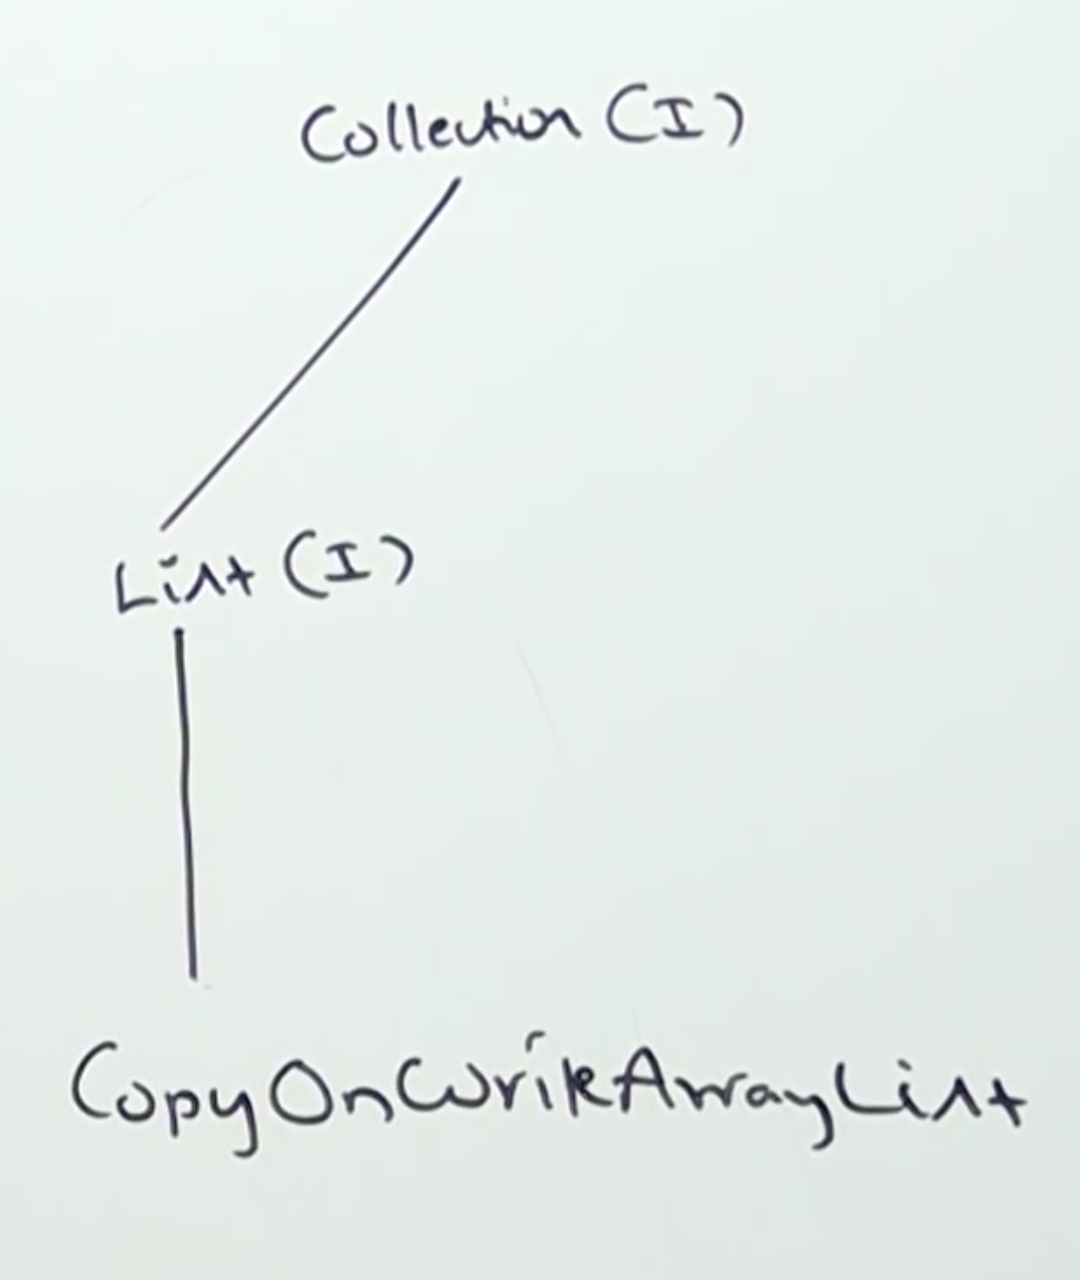 Collection (I)
List (I)
CopyOnWriteArrayList